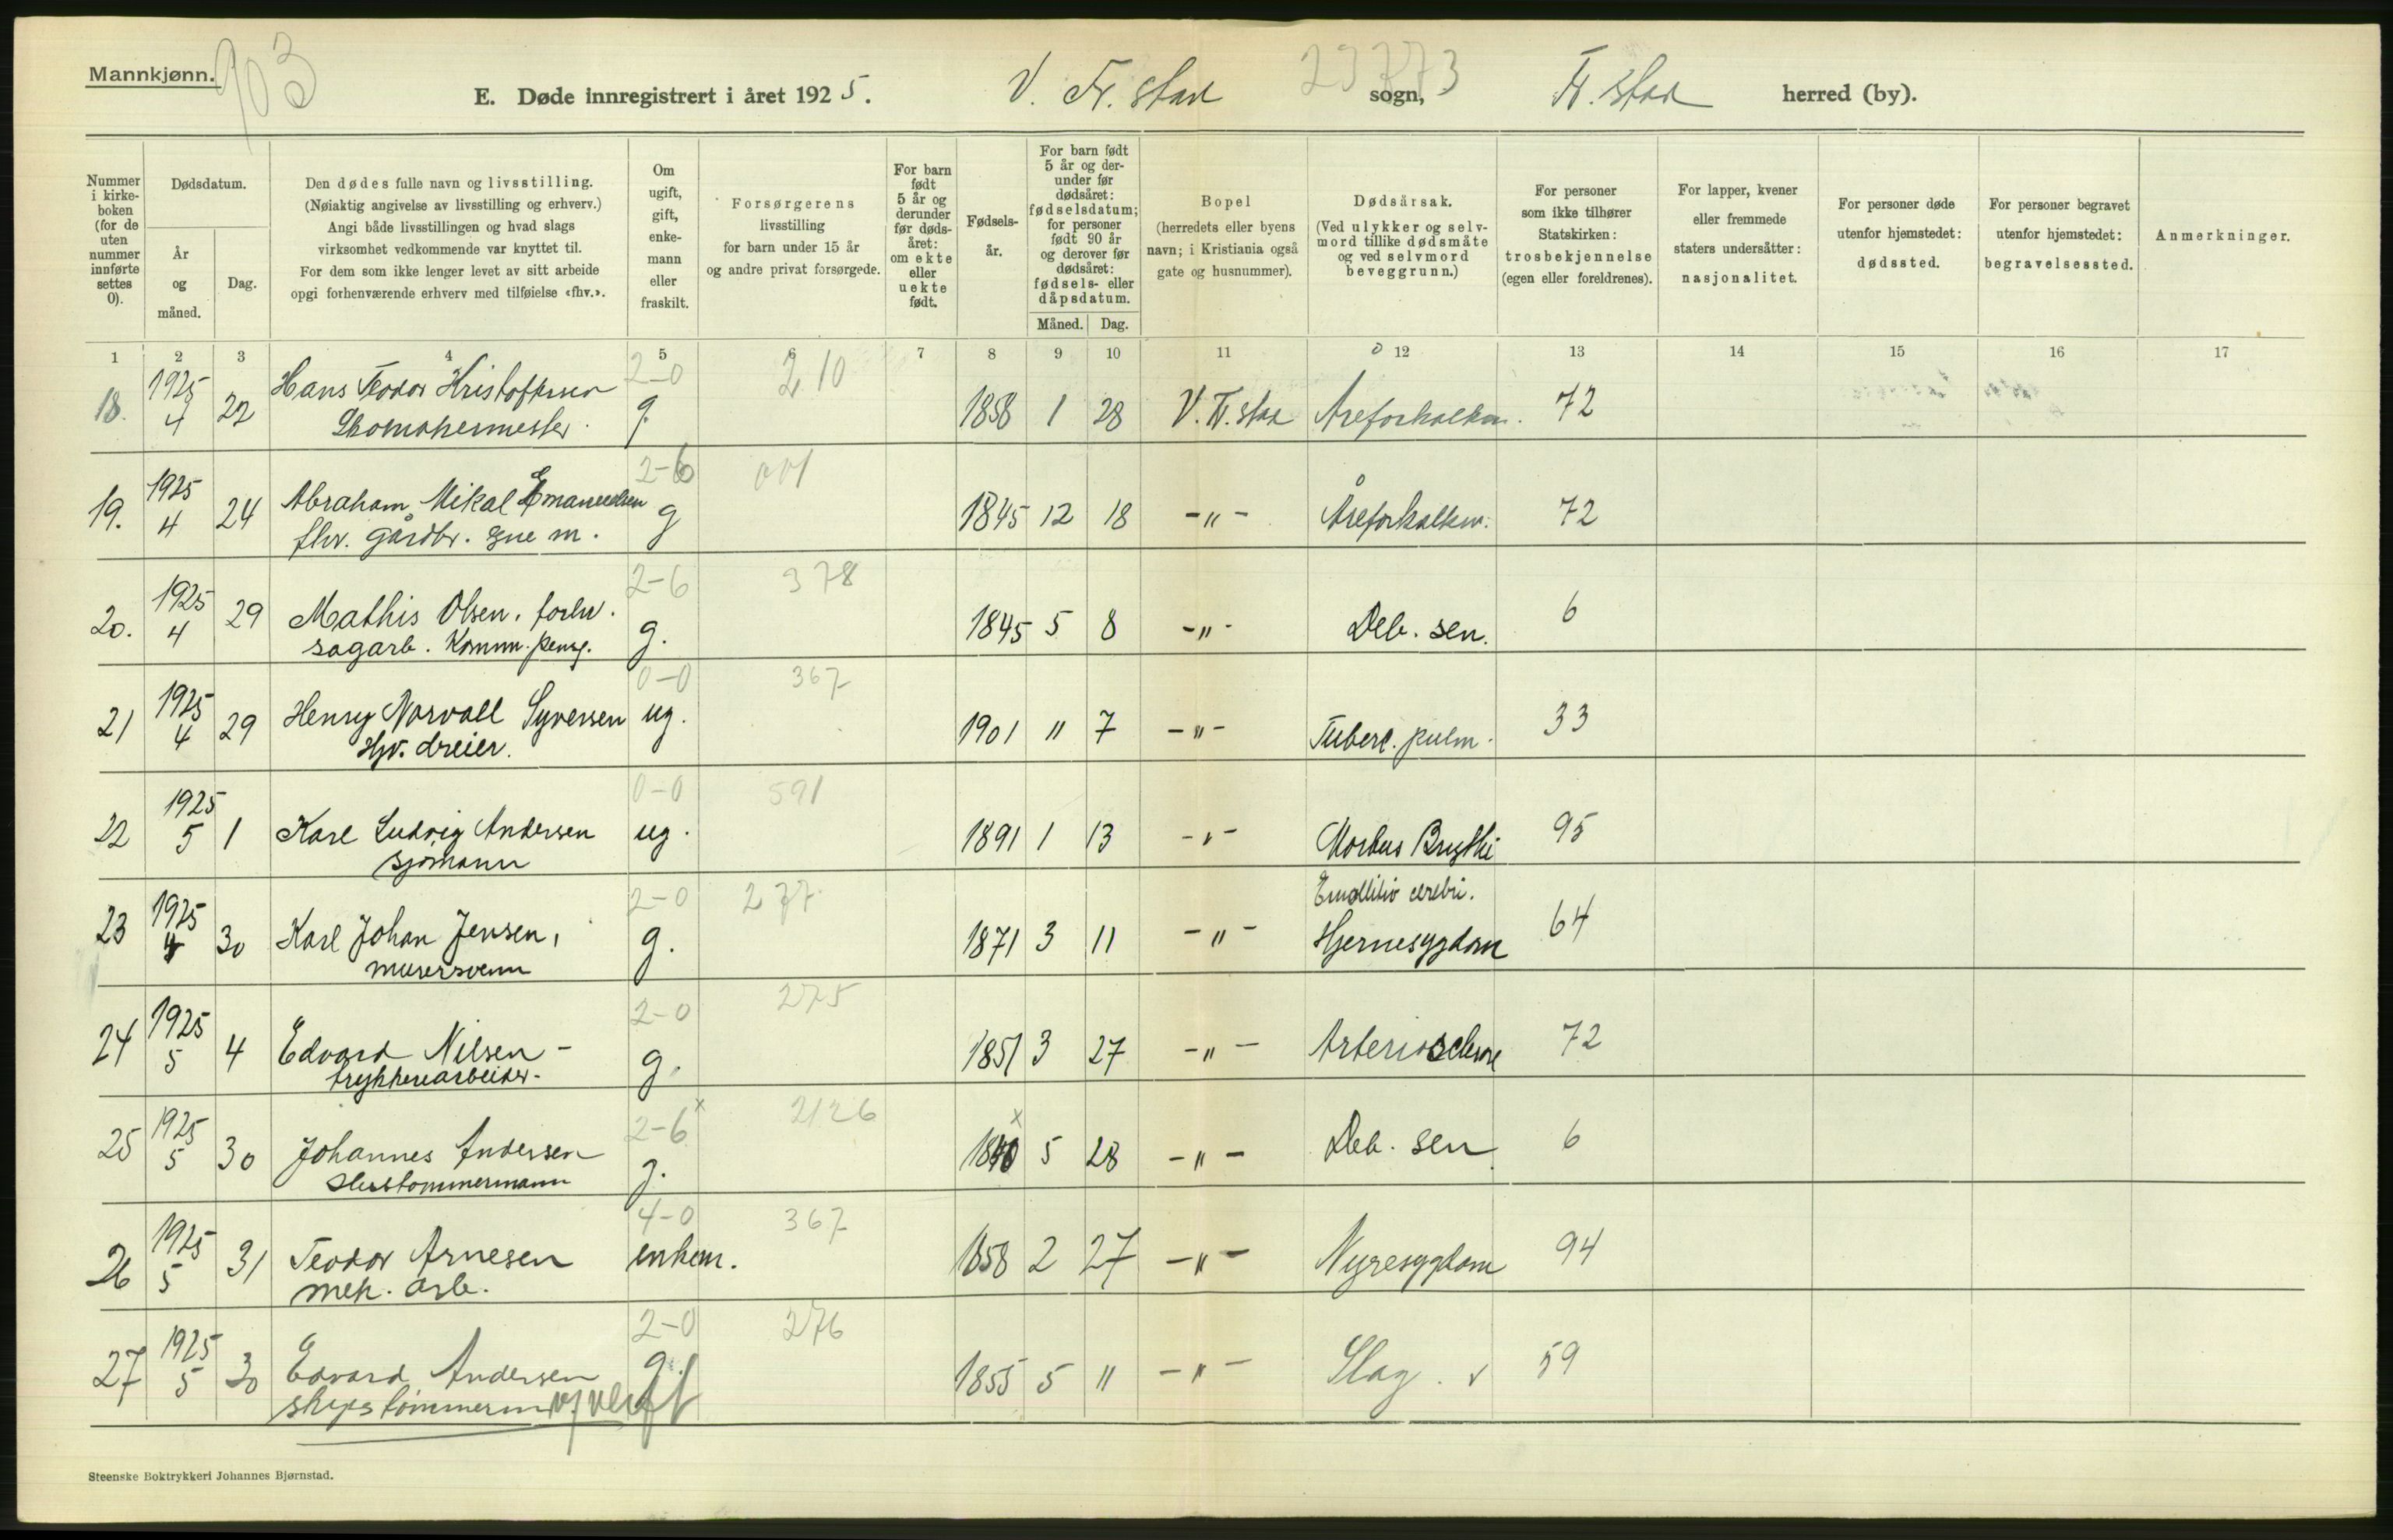 Mannkjønn.
903
E. Døde innregistrert i året 1925.
V. Fr. stad sogn,
23773
Fr. stad herred (by).
Nummer i kirke-boken (for de uten nummer innførte settes 0).
Dødsdatum.
År og måned.
Dag.
Den dødes fulle navn og livsstilling.
(Nøiaktig angivelse av livsstilling og erhverv.)
Angi både livsstillingen og hvad slags
virksomhet vedkommende var knyttet til.
For dem som ikke lenger levet av sitt arbeide
opgi forhenværende erhverv med tilføielse «fhv.».
Om ugift, gift, enke-mann eller fraskilt.
Forsørgerens
livsstilling
for barn under 15 år
og andre privat forsørgede.
For barn født 5 år og derunder før døds-året: om ekte eller uekte født.
Fødsels-år.
For barn født 5 år og der-under før dødsåret: fødselsdatum; for personer født 90 år og derover før dødsåret: fødsels- eller dåpsdatum.
Måned.
Dag.
Bopel
(herredets eller byens
navn; i Kristiania også
gate og husnummer).
Dødsårsak.
(Ved ulykker og selv-
mord tillike dødsmåte
og ved selvmord
beveggrunn.)
For personer
som ikke tilhører
Statskirken:
trosbekjennelse
(egen eller foreldrenes).
For lapper, kvener
eller fremmede
staters undersåtter:
nasjonalitet.
For personer døde
utenfor hjemstedet:
dødssted.
For personer begravet
utenfor hjemstedet:
begravelsessted.
Anmerkninger.
1 2 3 4 5 6 7 8 9 10 11 12 13 14 15 16 17
2-0 210
18. 1925 4 22 Hans Teodor Kristoffersen g. 1858 1 28 V. Fr. stad Åreforkalkn. 72
Skomakermester
2-6 001
19. 1925 4 24 Abraham Mikal Emanuelsen g 1845 12 18 -"- Åreforkalkn. 72
fhv. gårdbr. gue m.
2-6 378
20. 1925 4 29 Mathis Olsen, forhv. g. 1845 5 8 -"- Deb. sen. 6
sagarb. Komm. pensj.
0-0 367
21 1925 4 29 Henry Norvall Syversen ug. 1901 11 7 -"- Tuberc. pulm. 33
Hjv. dreier.
0-0 591
22 1925 5 1 Karl Ludvig Andersen ug. 1891 1 13 -"- Morbus Brigthi 95
sjömann
2-0 277
23 1925 4 30 Karl Johan Jensen, g. 1871 3 11 -"- cerebri. Hjernesygdom 64
murersvenn
2-0 275
24 1925 5 4 Edvard Nilsen - g. 1851 3 27 -"- Arterioschrose 72
trykkeriarbeider.
2-6 x 2126
25 1925 5 30 Johannes Andersen g. 1840 x 5 28 -"- Deb. sen 6
Hustømmermann
4-0 367
26 1925 5 31 Teodor Arnesen enkem. 1858 2 27 -"- Nyresygdom 94
mek. arb.
2-0 276
27 1925 5 30 Edvard Andersen g. 1855 5 11 -"- Slag. v 59
skipstømmerm v/ verft
Steenske Boktrykkeri Johannes Bjørnstad.